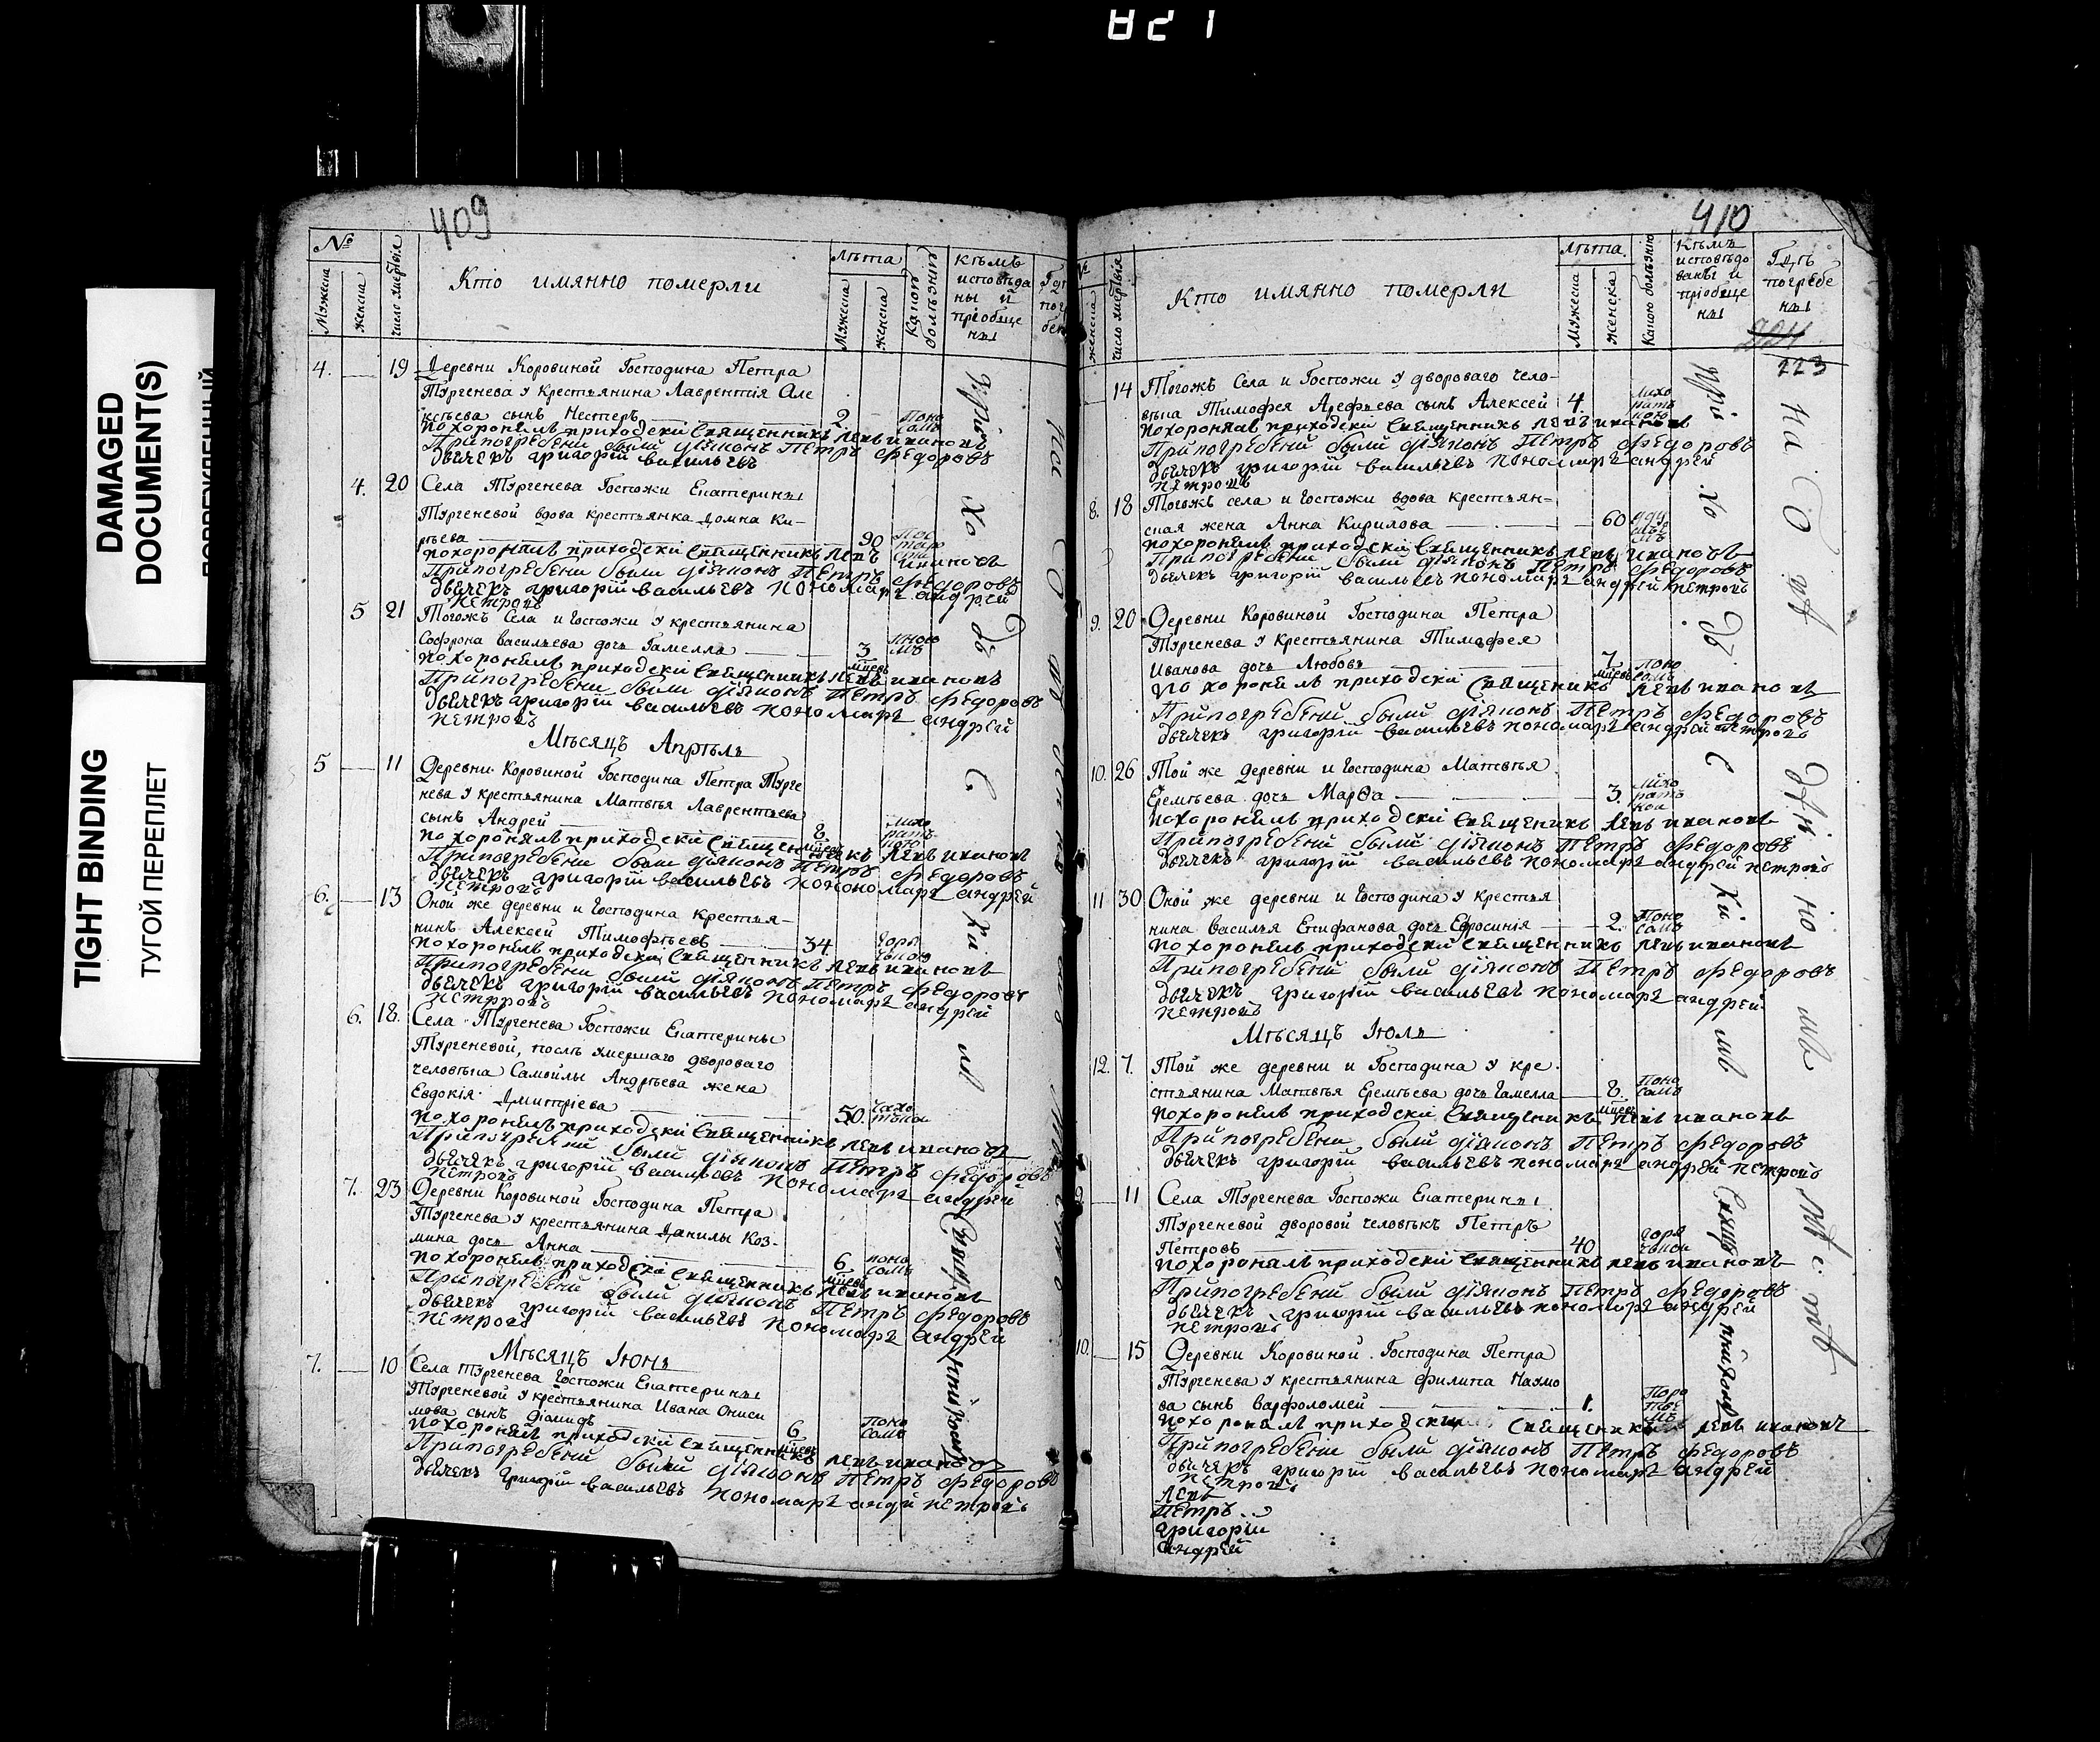 821
DAMAGED
DOCUMENT(S)
TIGHT BINDING
ТУГОЙ ПЕРЕПЛЕТ
409
№
Мужеска
женска
число умертвія
Кто имянно померли
лѣта
Мужеска
женска
какою
болѣзнию
кѣмъ
исповѣда
ны и
пріобще
ны
4. 19 Деревни Коровиной Господина Петра
Тургенева у Крестьянина Лаврентія Але
ксѣева сынъ Нестеръ 2 поно
сомъ
похоронялъ приходскій Священникъ левъ ивановъ
При погребеніи были діяконъ Петръ Федоровъ
дьячекъ григорій васильевъ
4. 20 Села Тургенева Госпожи Екатерины
Тургеневой вдова крестьянка домна Ки-
рѣева 90
похоронялъ приходскій Священникъ левъ ивановъ
При погребеніи были діяконъ Петръ Федоровъ
дьячекъ григорій васильевъ пономарь андрей
петровъ
5 21 Тогожъ Села и Госпожи у крестьянина
Софрона васильева дочь Гамелла 3
мцевъ
похоронялъ приходскій Священникъ левъ ивановъ
При погребеніи были діяконъ Петръ Федоровъ
дьячекъ григорій васильевъ пономарь андрей
петровъ
Мѣсяцъ Апрѣль
5 11 Деревни Коровиной Господина Петра Турге
нева у крестьянина Матвѣя Лаврентьева
сынъ Андрей 8 лихо
рато
кою
мцевъ
похоронялъ приходскій Священникъ левъ ивановъ
При погребеніи были діяконъ Петръ Федоровъ
дьячекъ григорій васильевъ пономарь андрей
петровъ
6. 13 Оной же деревни и Господина крестья-
нинъ Алексей Тимофѣевъ 34 горя
чкою
похоронялъ приходскій Священникъ левъ ивановъ
При погребеніи были діяконъ Петръ Федоровъ
дьячекъ григорій васильевъ пономарь андрей
петровъ
6. 18. Села Тургенева Госпожи Екатерины
Тургеневой, послѣ умершаго двороваго
человѣка Самойлы Андрѣева жена
Евдокія Дмитріева 50. чахо
ткои
похоронялъ приходскій Священникъ левъ ивановъ
При погребеніи были діяконъ Петръ Федоровъ
дьячекъ григорій васильевъ пономарь андрей
петровъ
7. 23 Деревни Коровиной Господина Петра
Тургенева у крестьянина Данилы Коз-
мина дочь Анна 6 поно
сомъ
мцевъ
похоронялъ приходскій Священникъ левъ ивановъ
При погребеніи были діяконъ Петръ Федоровъ
дьячекъ григорій васильевъ пономарь андрей
петровъ
Мѣсяцъ Іюнь
7. 10 Села Тургенева Госпожи Екатерины
Тургеневой у крестьянина Ивана Ониси
мова сынъ діомидъ 6 поно
сомъ
мцевъ
похоронялъ приходскій Священникъ левъ ивановъ
При погребеніи были діяконъ Петръ Федоровъ
дьячекъ григорій васильевъ пономарь андй петровъ
410
№
женска
число умертвія
Кто имянно померли
лѣта
Мужеска
женска
какою болѣзнию
кѣмъ
исповѣдо
ваны и
пріобще
ны
Гдѣ
погребе
ны
224
223
14 Тогожъ Села и Госпожи у двороваго чело-
вѣка Тимофея Арефьева сынъ Алексей 4 лихо
рато
кою
похоронялъ приходскій Священникъ левъ ивановъ
При погребеніи были діяконъ Петръ Федоровъ
дьячекъ григорій васильевъ пономарь андрей
петровъ
8. 18 Тогожъ села и Госпожи вдова крестьян-
ская жена Анна Кирилова 60
похоронялъ приходскій Священникъ левъ ивановъ
При погребеніи были діяконъ Петръ Федоровъ
дьячекъ григорій васильевъ пономарь андрей петровъ
9. 20 Деревни Коровиной Господина Петра
Тургенева у Крестьянина Тимофея
Иванова дочь Любовь 7 поно
сомъ
мцевъ
похоронялъ приходскій Священикъ левъ ивановъ
При погребеніи были діяконъ Петръ Федоровъ
дьячекъ григорій васильевъ пономарь андрей петровъ
10. 26 Той же деревни и Господина Матвѣя
Еремѣева дочь Марѳа 3. лихо
рато
кои
похоронялъ приходскій Священикъ левъ ивановъ
При погребеніи были діяконъ Петръ Федоровъ
дьячекъ григорій васильевъ пономарь андрей петровъ
11 30 Оной же деревни и Господина у крестья
нина василья Епифанова дочь Ефросинія 2. поно
сомъ
похоронялъ приходскій Священникъ левъ ивановъ
При погребеніи были діяконъ Петръ Федоровъ
дьячекъ григорій васильевъ пономарь андрей
петровъ
Мѣсяцъ Іюль
12. 7. Той же деревни и Господина у кре
стьянина Матвѣя Еремѣева дочь Гамелла 8. поно
сомъ
мцевъ
похоронялъ приходскій Священикъ левъ ивановъ
При погребеніи были діяконъ Петръ Федоровъ
дьячекъ григорій васильевъ пономарь андрей петровъ
9. 11 Села Тургенева Госпожи Екатерины
Тургеневой дворовой человѣкъ Петръ
Петровъ 40 горя
чкои
похоронялъ приходскій Священникъ левъ ивановъ
При погребеніи были діяконъ Петръ Федоровъ
дьячекъ григорій васильевъ пономарь андрей
петровъ
10. 15 Деревни Коровиной Господина Петра
Тургенева у крестьянина Филипа Наумо
ва сынъ варфоломей 1.
похоронялъ приходскій Священикъ левъ ивановъ
При погребеніи были діяконъ Петръ Федоровъ
дьячекъ григорій васильевъ пономарь андрей
петровъ
левъ
Петръ
григорій
андрей